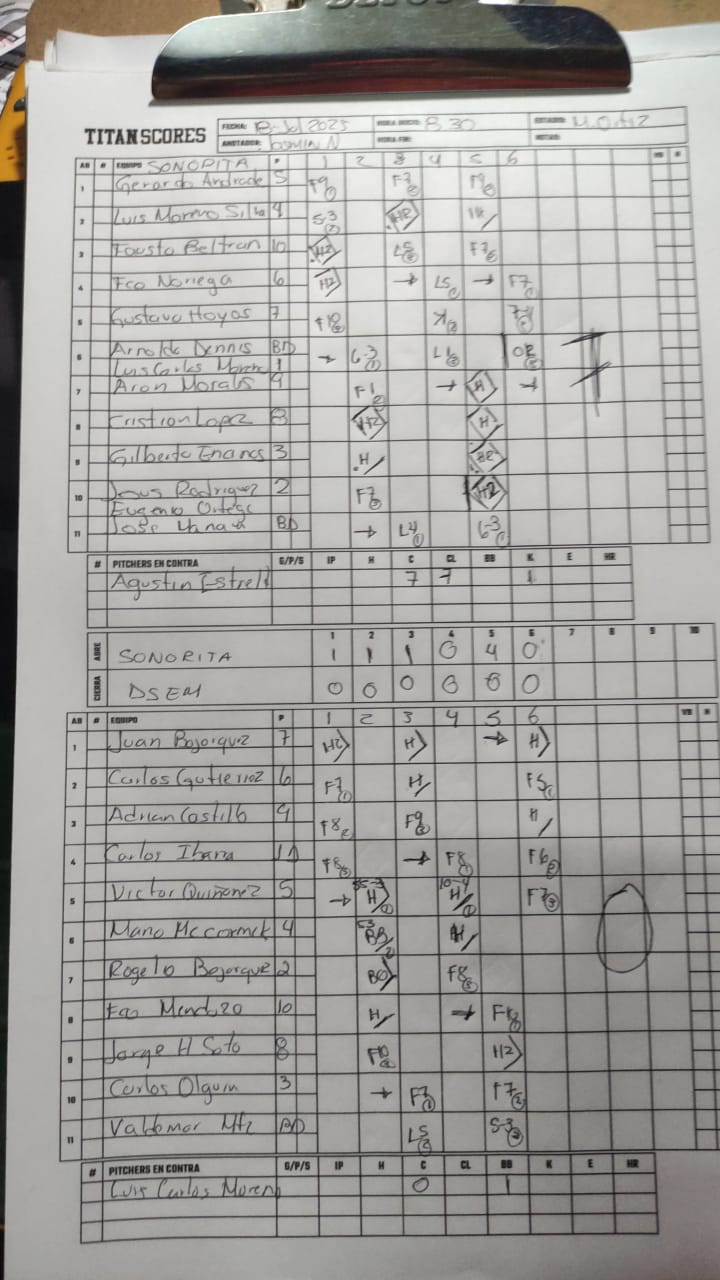 TITAN SCORES
FECHA: 13-Jul 2025 HORA INICIO: 8 30 ESTADIO: M. Ortiz
ANOTADOR: HORA FIN:
AB # EQUIPO SONORITA P 1 2 3 4 5 6 VB H
1 Gerardo Andrade 5 F9 F7 F9
2 Luis Moreno Silva 4 5-3 HR
3 Fausto Beltran 10 H2 L5 F7
4 Fco Noriega 6 H2 → L5 → F7
5 Gustavo Hoyos 7 F10 K
6 Arnoldo Dennis BD → 6-3 L1
Luis Carlos Moreno 1
7 Aron Morales 9 F1 → H →
8 Cristian Lopez 8 H2 H
9 Gilberto Encinas 3 H
10 Jesus Rodriguez 2 F7 H2
Eugenio Ortega
11 Jose BD → L4 6-3
# PITCHERS EN CONTRA G/P/S IP H C CL BB K E HR
Agustin Estrell 7 7 1
1 2 3 4 5 6 7 8 9 10
ABRE SONORITA 1 1 1 0 4 0
CIERRA DSEM 0 0 0 0 0 0
AB # EQUIPO P 1 2 3 4 5 6 VB H
1 Juan Bojorquez 7 H2 H → H
2 Carlos Gutierrez 6 F7 H F5
3 Adrian Castillo 9 F8 F9 H
4 Carlos Ibarra F8 → F8 F6
5 Victor Quiñonez 5 → H H F7
6 Mario Mccormick 4 BB H
7 Rogelio Bojorquez 2 F8
8 Fco Mendozo 10 H →
9 Jorge H Soto 8 F10 H2
10 Carlos Olguin 3 → F7 F7
11 Valdomar Mtz BD L5 5-3
# PITCHERS EN CONTRA G/P/S IP H C CL BB K E HR
Luis Carlos Moreno 0 1